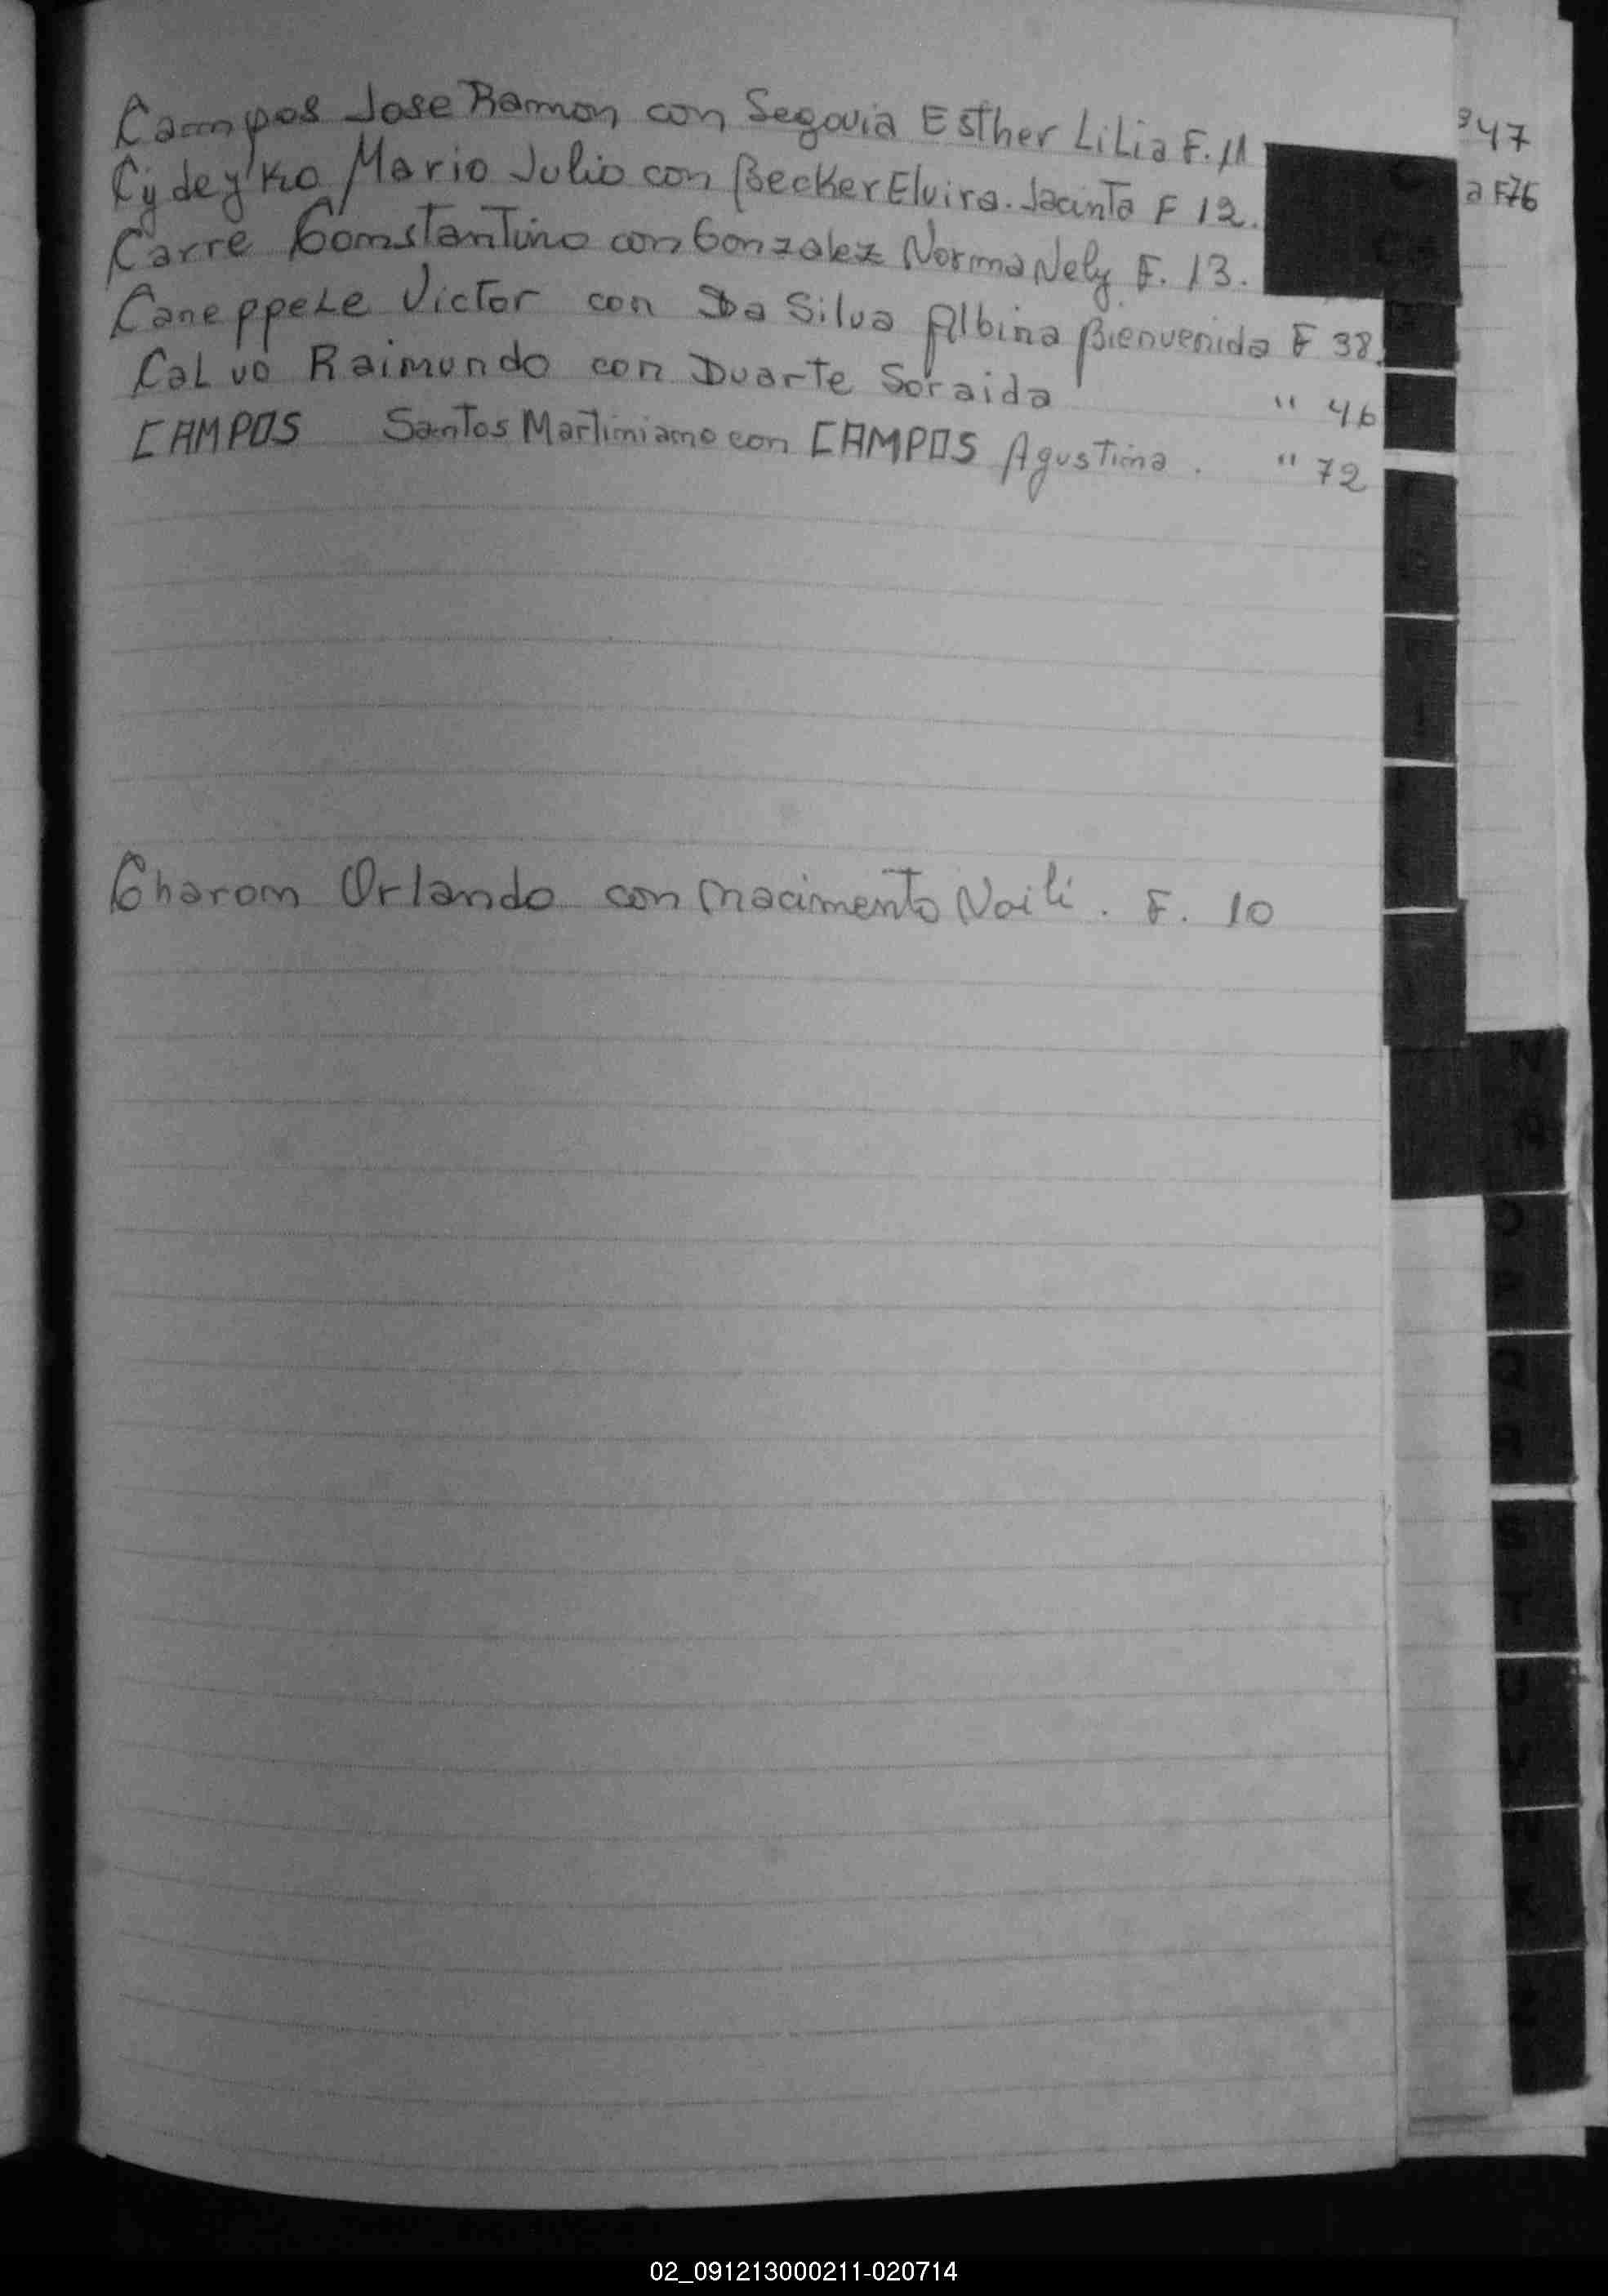 Campos Jose Ramon con Segovia Esther Lilia F. 11
Cydeyko Mario Julio con Becker Elvira. Jacinta F 12.
Carre Constantino con Gonzalez Norma Nely F. 13.
Caneppele Victor con Da Silva Albina Bienvenida F 38.
Calvo Raimundo con Duarte Soraida " 46
CAMPOS Santos Martiniano con CAMPOS Agustina. " 72
47
a F76
Charom Orlando con Nacimento Noili. F. 10
N
O
P
Q
R
S
T
U
V
02_091213000211-020714